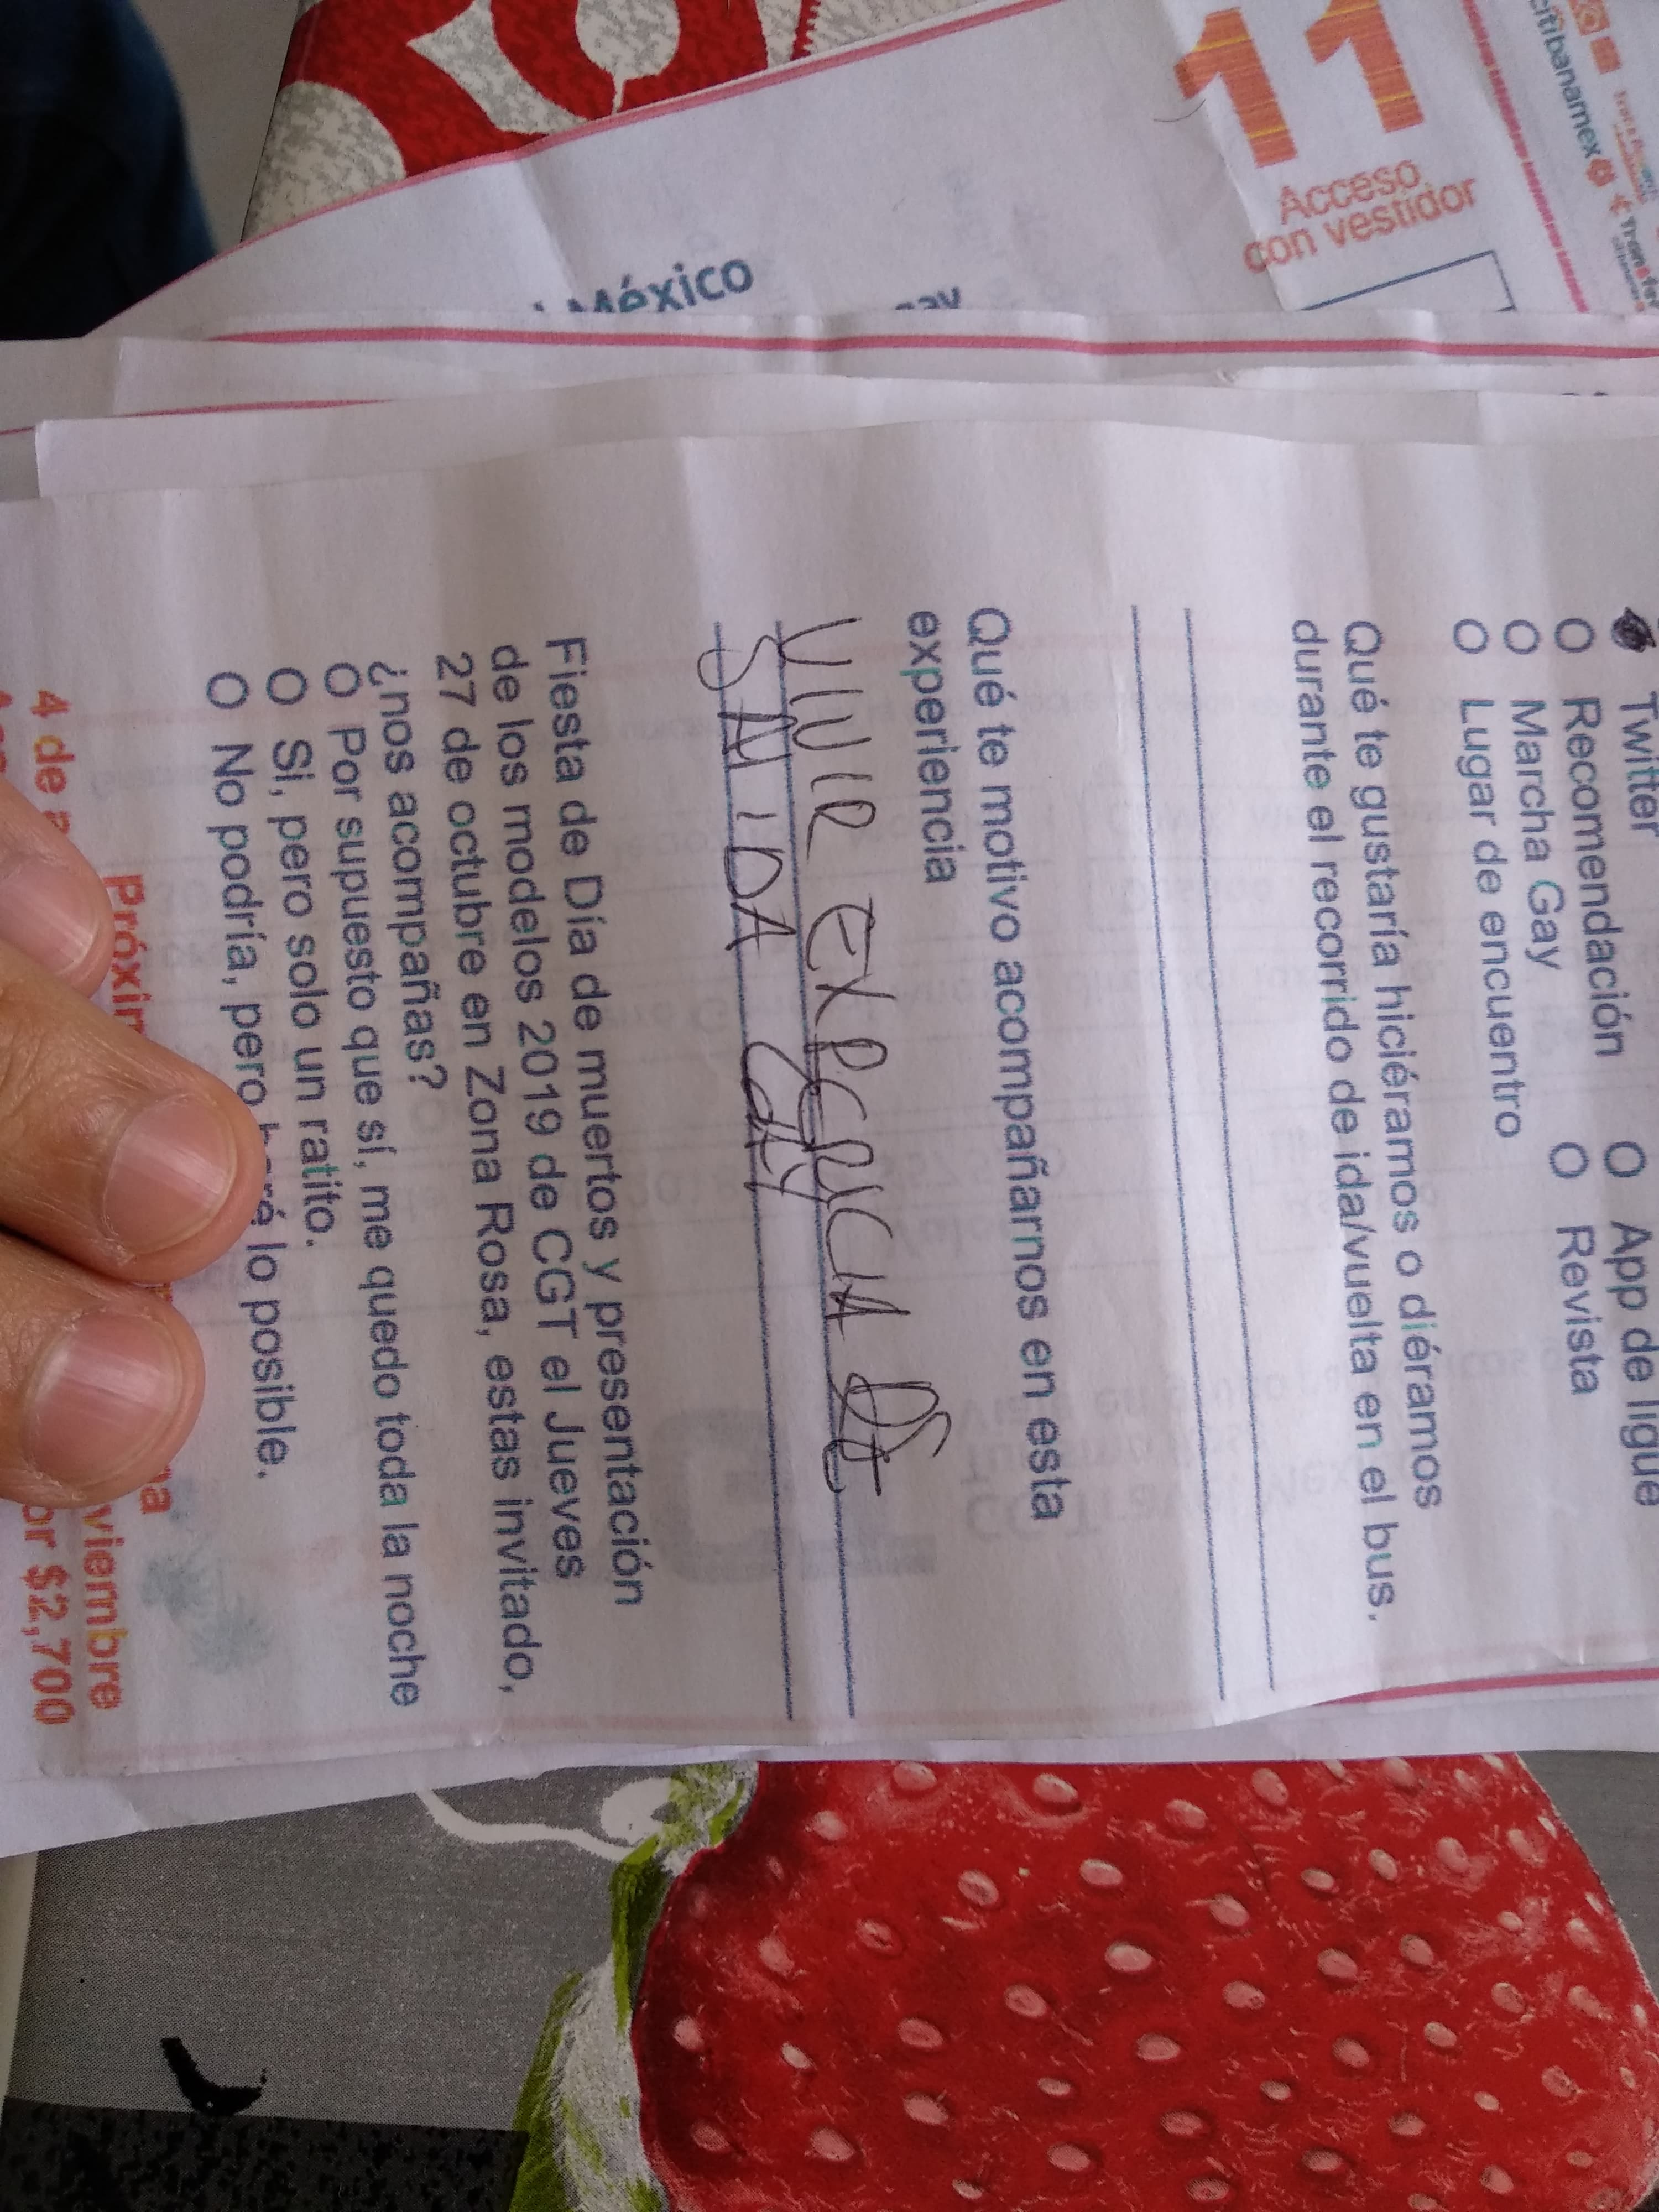 citibanamex Transfer
11
Acceso
con vestidor
México
Twitter O App de ligue
O Recomendación O Revista
O Marcha Gay
O Lugar de encuentro
Qué te gustaría hiciéramos o diéramos
durante el recorrido de ida/vuelta en el bus.
Qué te motivo acompañarnos en esta
experiencia
VIVIR EXPERICIA DE
SALIDA GAY
Fiesta de Día de muertos y presentación
de los modelos 2019 de CGT el Jueves
27 de octubre en Zona Rosa, estas invitado,
¿nos acompañas?
O Por supuesto que sí, me quedo toda la noche
O Si, pero solo un ratito.
O No podría, pero haré lo posible.
4 de
$2,700